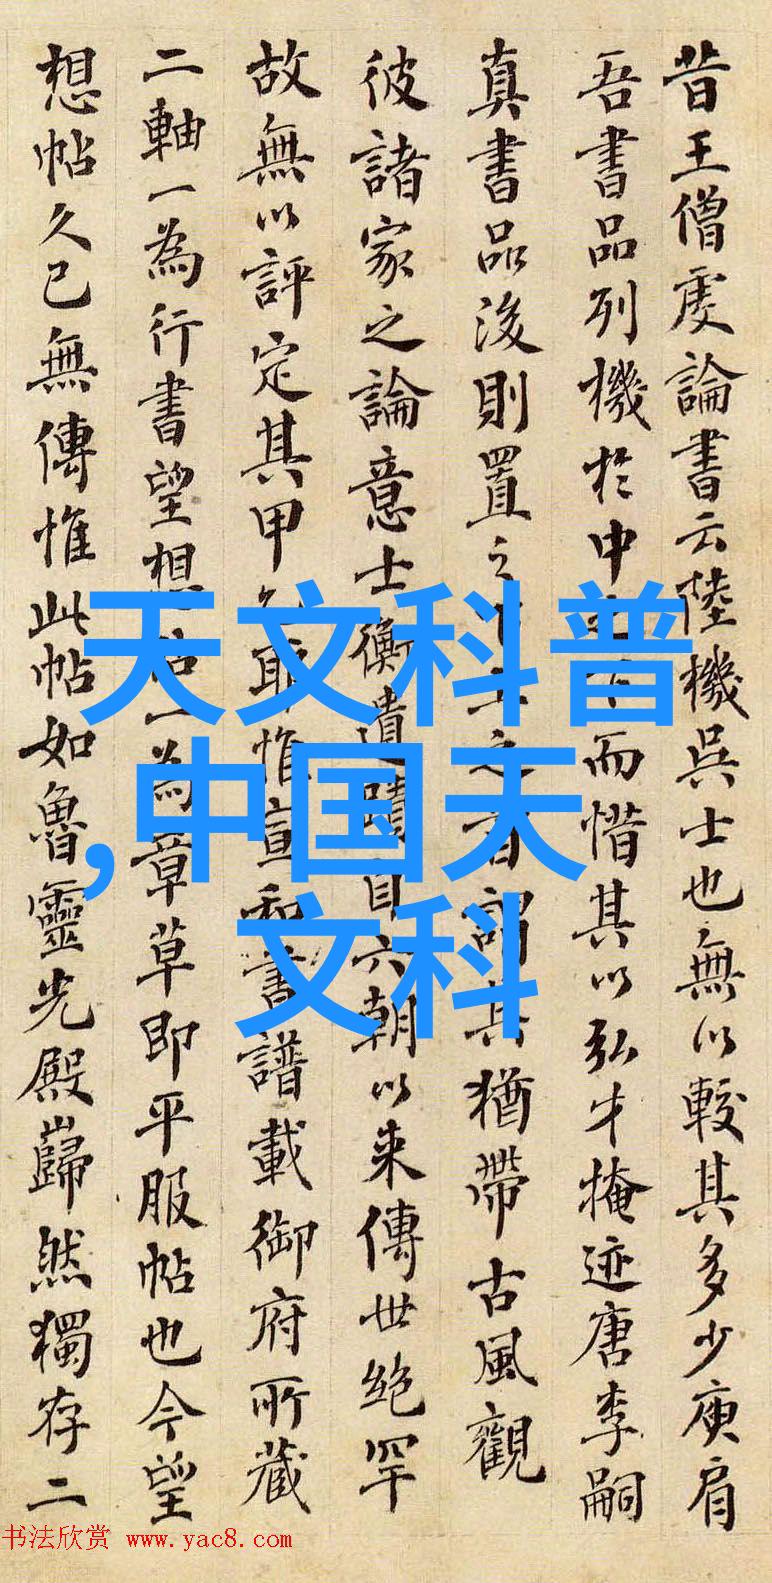 昔王僧虔論書云陸機吳士也無以較其多少庾肩
吾書品列機於中之下而惜其以弘才掩迹唐李嗣
真書品後則置之下上之首謂其猶帶古風觀
彼諸家之論意士衡遺蹟自六朝以来傳世絶罕
故無以評定其甲乙耶惟宣和書譜載御府所藏
二軸一為行書望想帖一為章草即平服帖也今望
想帖久已無傳惟此帖如魯靈光殿巋然獨存二
天文科普
,中国天
文科
书法欣赏 www.yac8.com